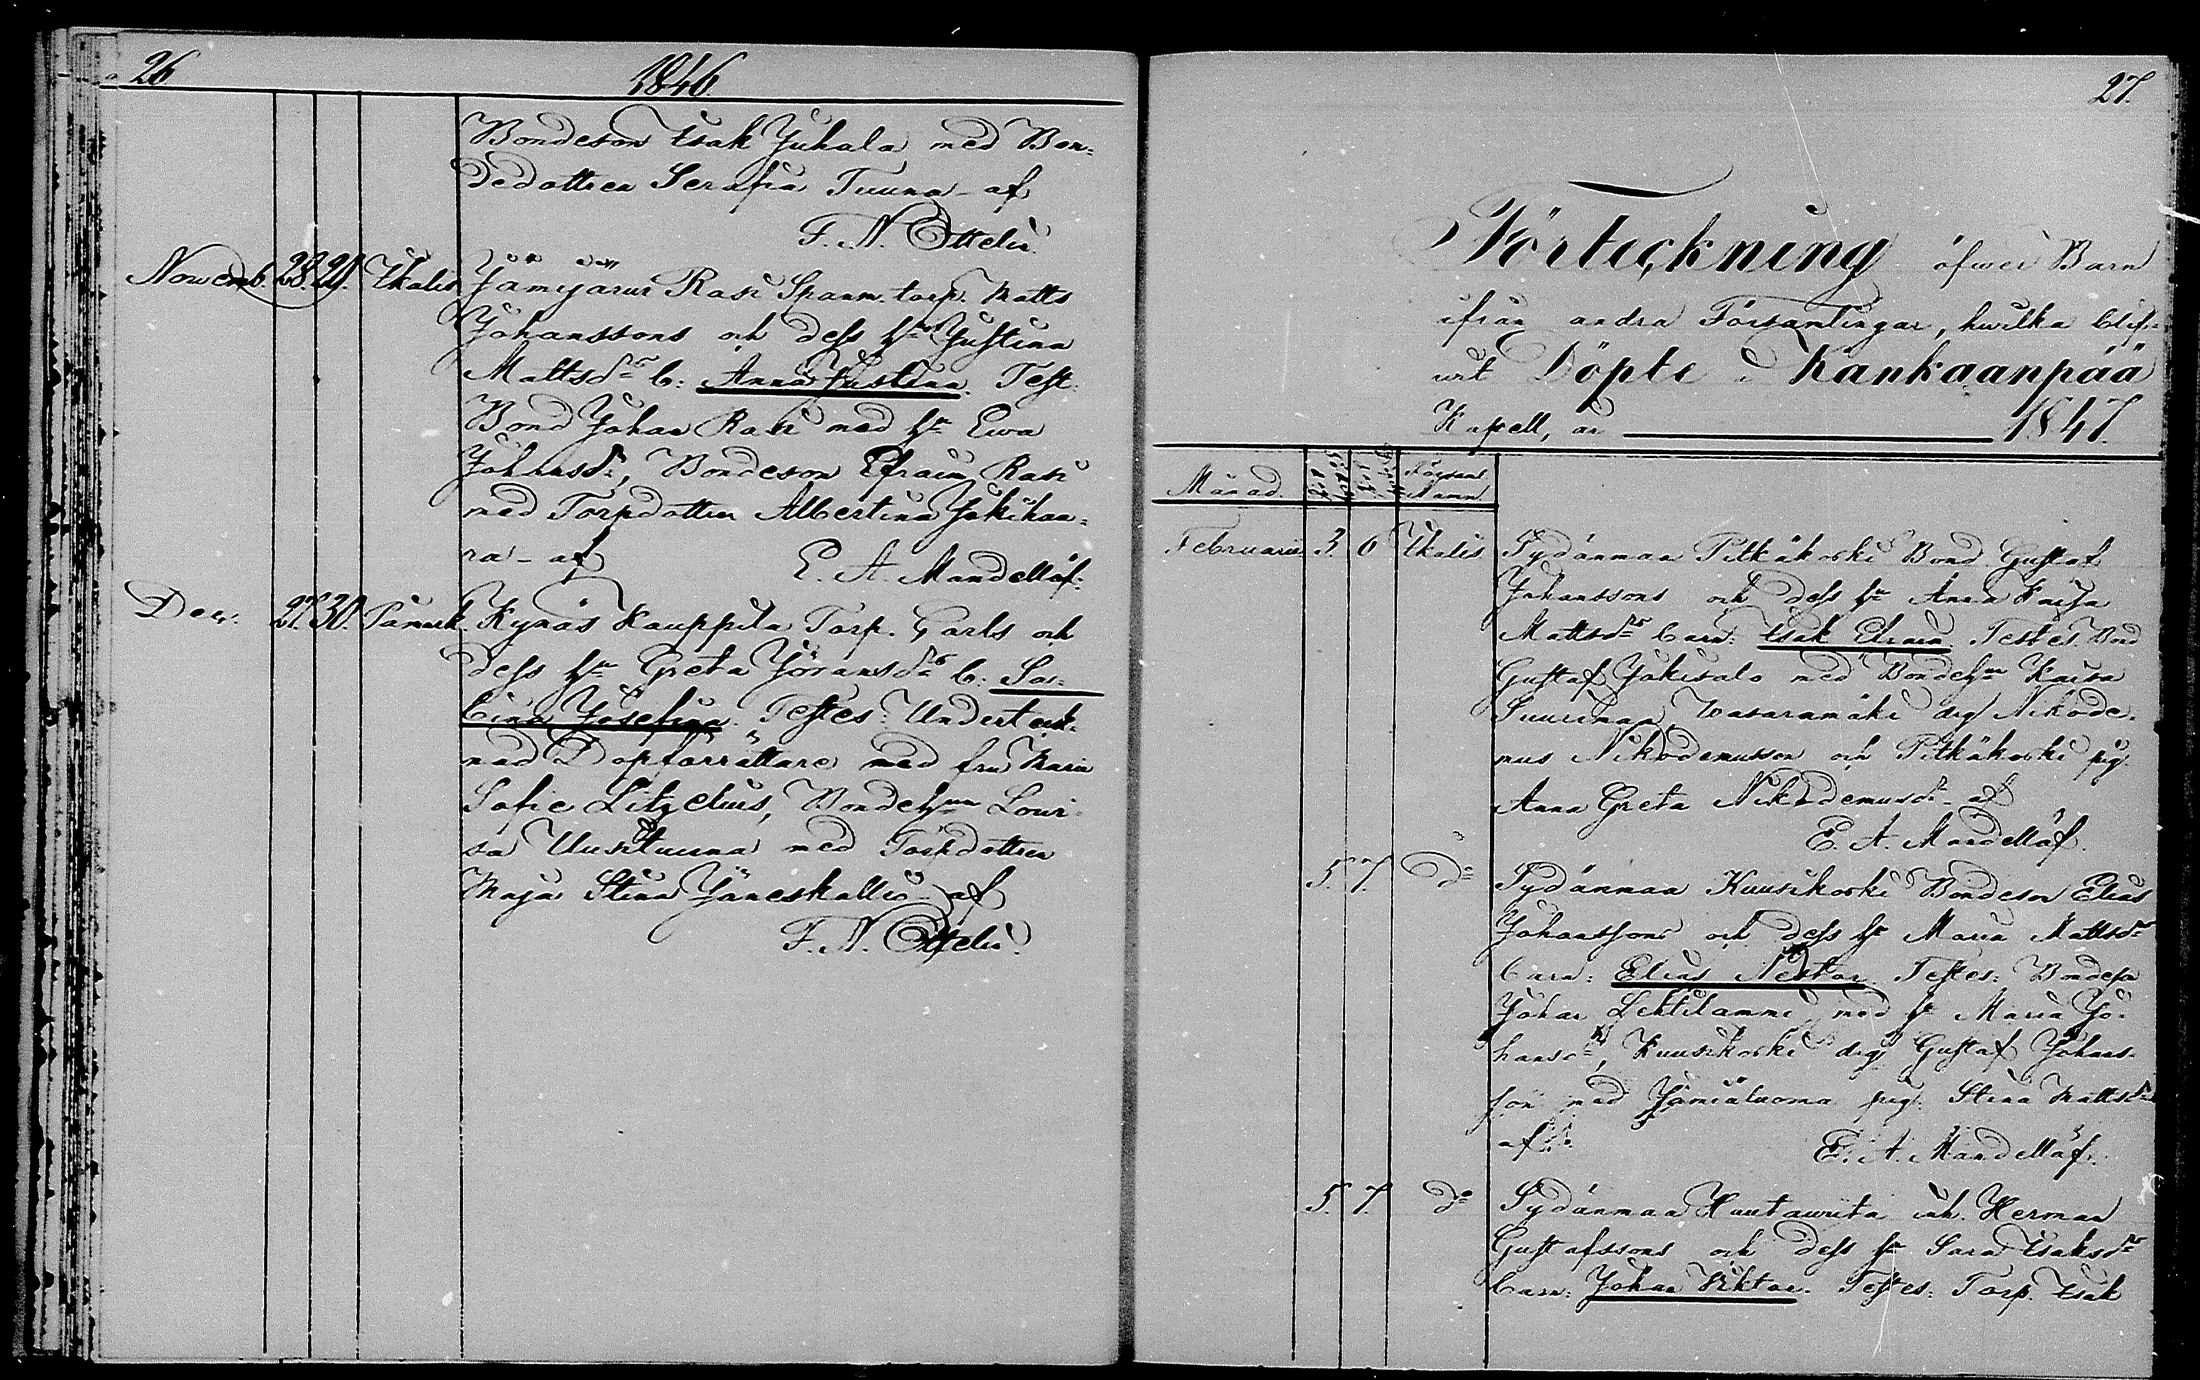 26
1846.
Bondeson Isak Juhala med Bon=
dedottren Serafia Tuuna - af
F. N. Ottelin
Novemb. 28. 29. Ikalis Jämijärvi Rasi Spanm. torp. Matts
Johanssons och dess h:u Justina
Mattsd:r b: Anna Justina. Test.
Bond Johan Rasi med h:u Ewa
Johansd:r, Bondeson Efraim Rasi
med Torpdottren Albertina Jokihaa=
ra - af E. A. Mandellöf.
Dec. 27. 30. Påmark. Kynäs Kauppila Torp. Carls och
dess h:u Greta Jöransd:rs b: Sa=
bina Josefina. Testes: Underteck=
nad Dopförrättare med fru Maria
Sofie Litzelius, Bondeh:un Loui=
sa Uusituuna med Torpdottren
Maja Stina Jäneskallio af
F. N. Ottelin.
27.
Förteckning öfwer Barn
ifrån andra Församlingar, hwilka blif=
wit Döpte i Kankaanpää
Kapell, år 1847.
Månad. Församl. Namn
Februarii 3. 6 Ikalis Sydänmaa Pitkäkoski Bond. Gustaf
Johanssons och dess h:u Anna Kaisa
Mattsd:rs barn: Isak Efraim. Testes. Bond
Gustaf Jokisalo med Bondeh:un Kaisa
Suurimaa, Wasaramäki drg Nikode=
mus Nikodemusson och Pitkäkoski pig.
Anna Greta Nikodemusd:r - af
E. A. Mandellöf.
5. 7. D:o Sydänmaa Kuusikoski Bondeson Elias
Johanssons och dess h:u Maria Mattsd:rs
barn: Elias Nestor. Testes: Bondeson
Johan Lehtilammi med h:u Maria Jo=
hansd:r, Kuusikoski drg Gustaf Johans=
son med Jämiäluoma pig. Stina Mattsd:r
af E. A. Mandellöf.
5. 7. D:o Sydänmaa Huutawiita inh. Herman
Gustafssons och dess h:u Sara Isaksd:rs
barn: Johan Viktor. Testes: Torp. Isak